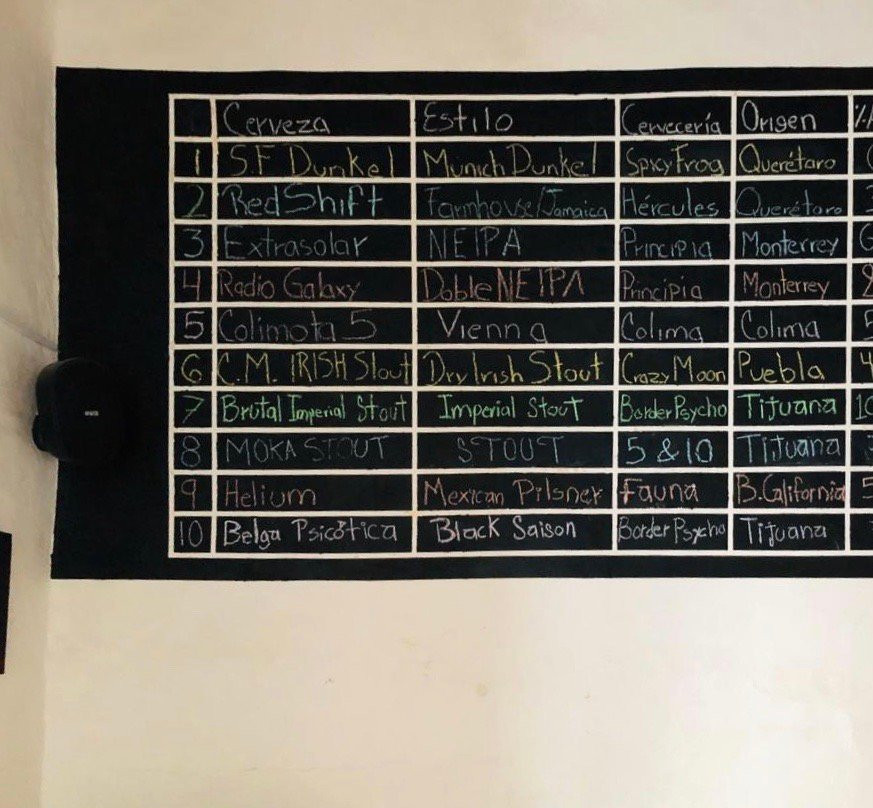 Cerveza Estilo Cervecería Origen
1 S.F Dunkel Munich Dunkel Spicy Frog Querétaro
2 Red Shift Farmhouse/Jamaica Hércules Querétaro
3 Extrasolar NEIPA Principia Monterrey
4 Radio Galaxy Doble NEIPA Principia Monterrey
5 Colimota 5 Vienna Colima Colima
6 C.M. IRISH Stout Dry Irish Stout Crazy Moon Puebla
7 Brutal Imperial Stout Imperial Stout Border Psycho Tijuana 10
8 MOKA STOUT STOUT 5 & 10 Tijuana
9 Helium Mexican Pilsner Fauna B.California 5
10 Belga Psicótica Black Saison Border Psycho Tijuana